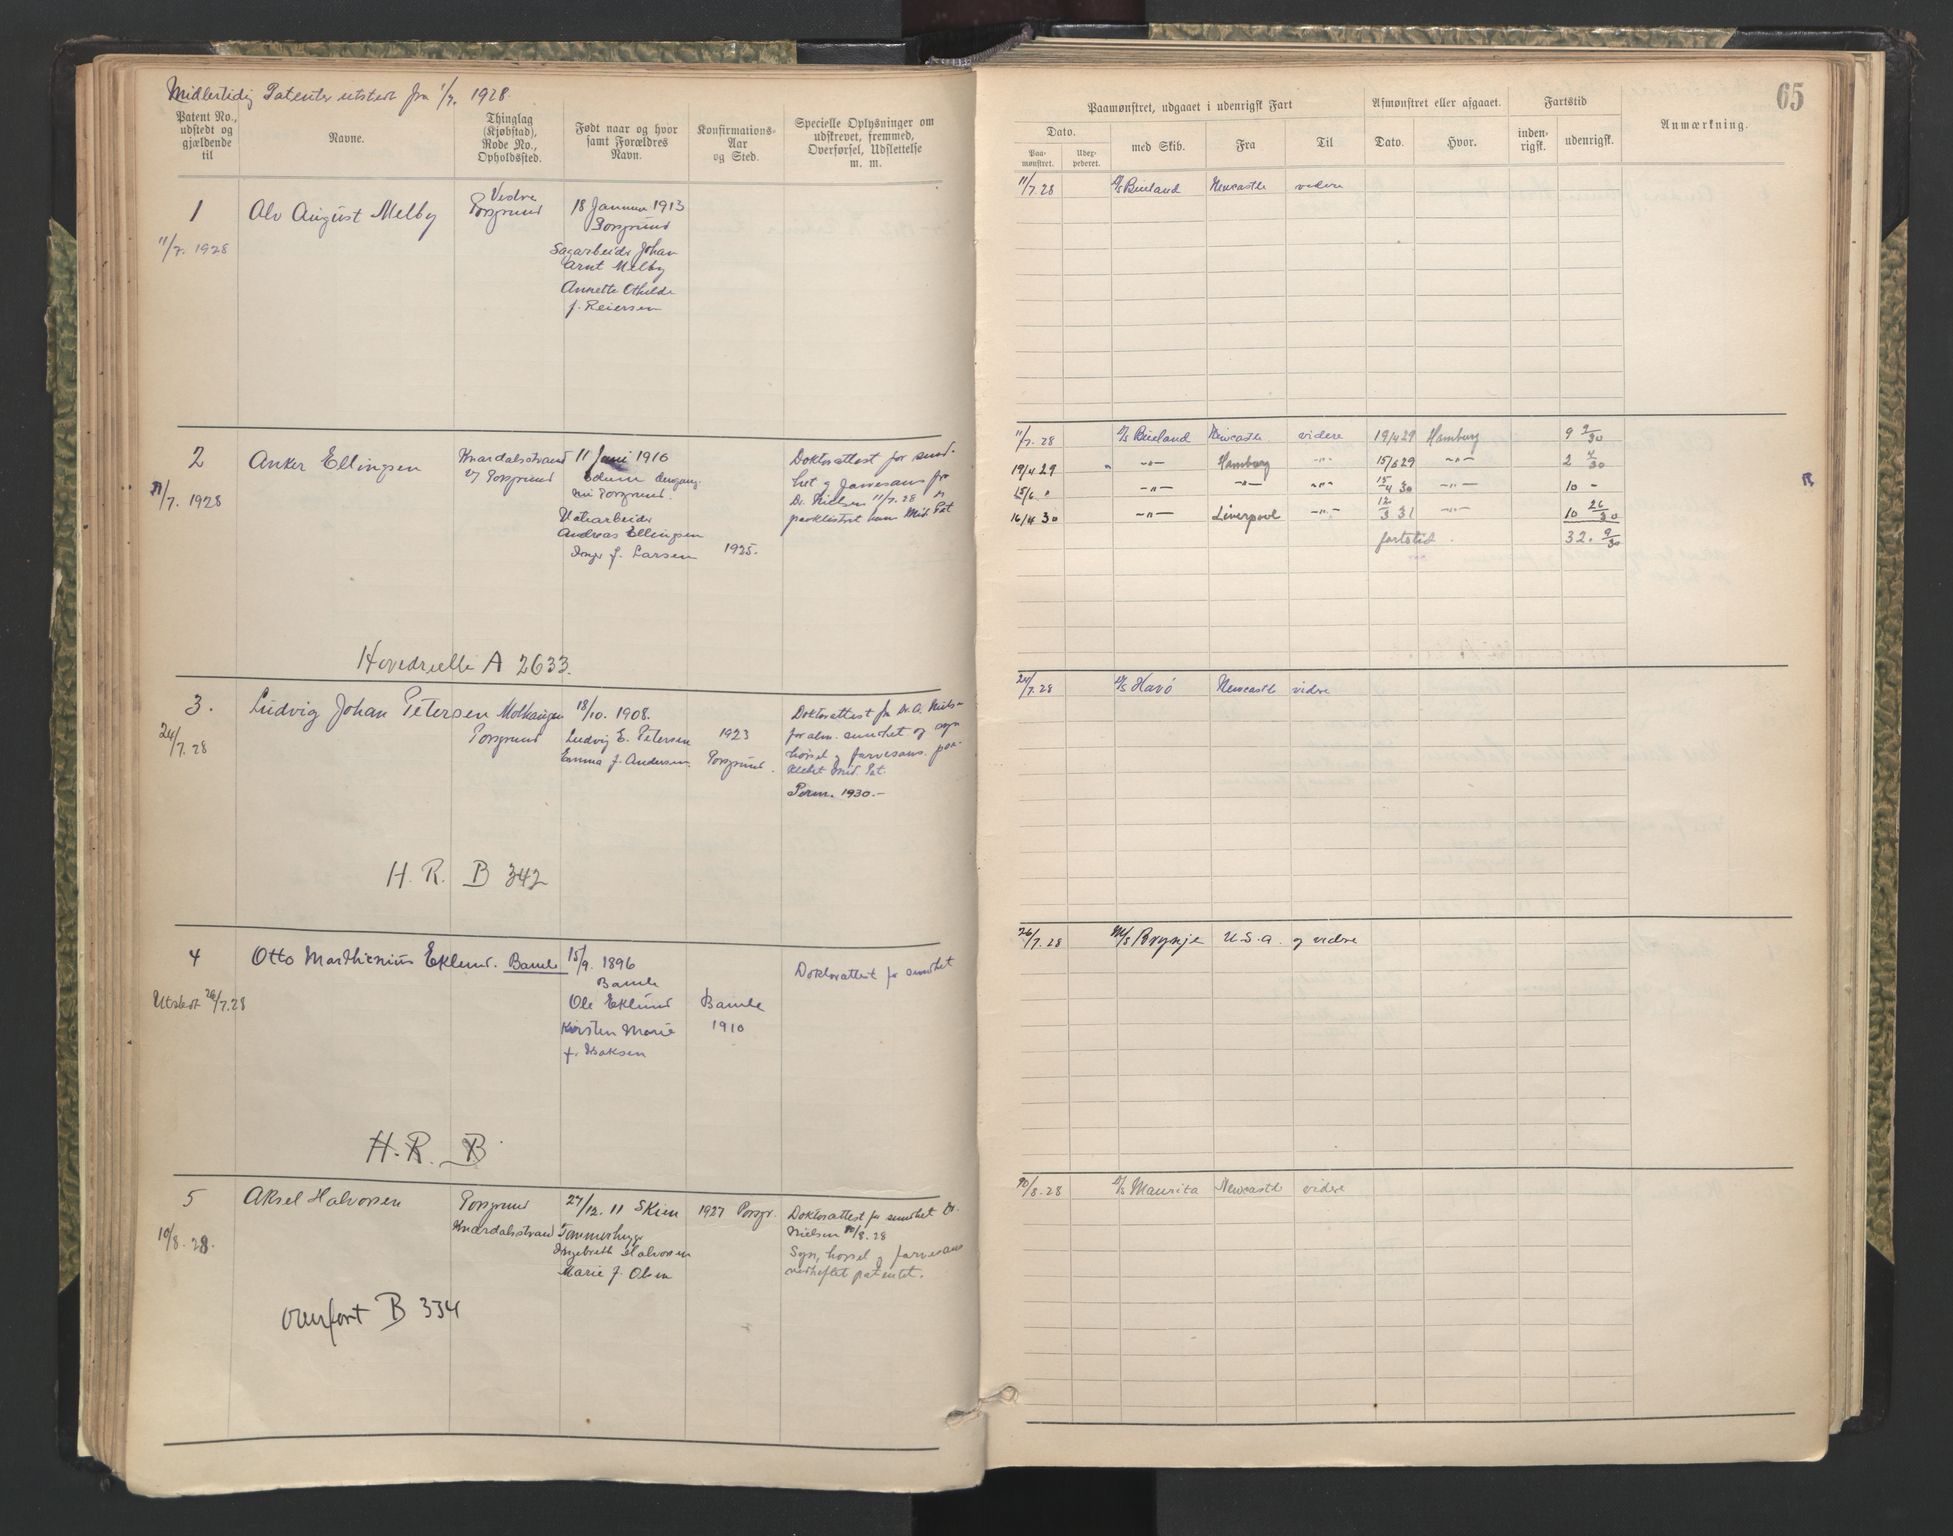 Midlertidig Patenter utstedt fra 1/7. 1928.
Patent No., udstedt og gjældende til
Navne.
Thinglag (Kjøbstad), Rode No., Opholdssted.
Født naar og hvor samt Forældres Navn.
Konfirmations-Aar og Sted.
Specielle Oplysninger om udskrevet, fremmed, Overførsel, Udslettelse m. m.
1
11/7. 1928
Alv August Melby
Vestre
Porsgrund
18 Januar 1913
Porsgrund
Sagarbeider Johan
Arnt Melby
Annette Othilde
f. Reiersen
2
11/7. 1928
Anker Ellingsen
Knardalsstrand
v/ Porsgrund
11 Juni 1910
Eidum dengang
nu Porsgrund.
Uteharbeider
Andreas Ellingsen
Inger f. Larsen
1925.
Doktorattest for sund-
het og farvesans fra
Dr. Nielsen 11/7. 28
paaklistret hans Mid. Pat
Hovedrulle A 2633.
3.
24/7. 28
Ludvig Johan Petersen
Molhaugen
Porsgrund
18/10. 1908.
Ludvig E. Petersen
Emma f. Andersen.
1923
Porsgrund.
Doktorattest fra Dr. A. Niels-
for alm. sundhet og syn
hørsel og farvesans. paa-
klebet Mid. Pat.
Perm. 1930.-
H. R. B 342
4
Utstedt 26/7. 28
Otto Marthinius Eklund.
Bamle
15/9. 1896
Bamle
Ole Eklund
Kirsten Marie
f. Isaksen
Bamle
1910
Doktorattest for sundhet
H. R. B
5
10/8. 28.
Aksel Halvorsen
Porsgrund
Knardalsstrand
27/12. 11 Skien
Tømmerhugger
Ingebreth Halvorsen
Marie f. Olsen
1927 Porsgr.
Doktorattest for sundhet Dr.
Nielsen 10/8. 28
Syn, hørsel og farvesans
vedheftet patentet.
overført B 334
65
Paamønstret, udgaaet i udenrigsk Fart
Afmønstret eller afgaaet.
Fartstid
Anmærkning.
Dato.
Paa-mønstret.
Udex-pederet.
med Skib.
Fra
Til
Dato.
Hvor.
inden-rigsk.
udenrigsk.
11/7. 28 D/S Bieland Newcastle videre
11/7. 28 D/S Bieland Newcastle videre 19/4 29 Hamburg 9 2/30
19/4 29 " -"- Hamburg -"- 15/6 29 -"- 2 4/30
15/6 " -"- -"- -"- 15/4 30 -"- 10 -
16/4 30 -"- Liverpool -"- 12/3 31 -"- 10 26/30
fartstid. 32. 9/30
24/7. 28 D/S Havø Newcastle videre
26/7. 28 M/S Brynje U.S.A. og videre
10/8. 28 D/S Maurita Newcastle videre